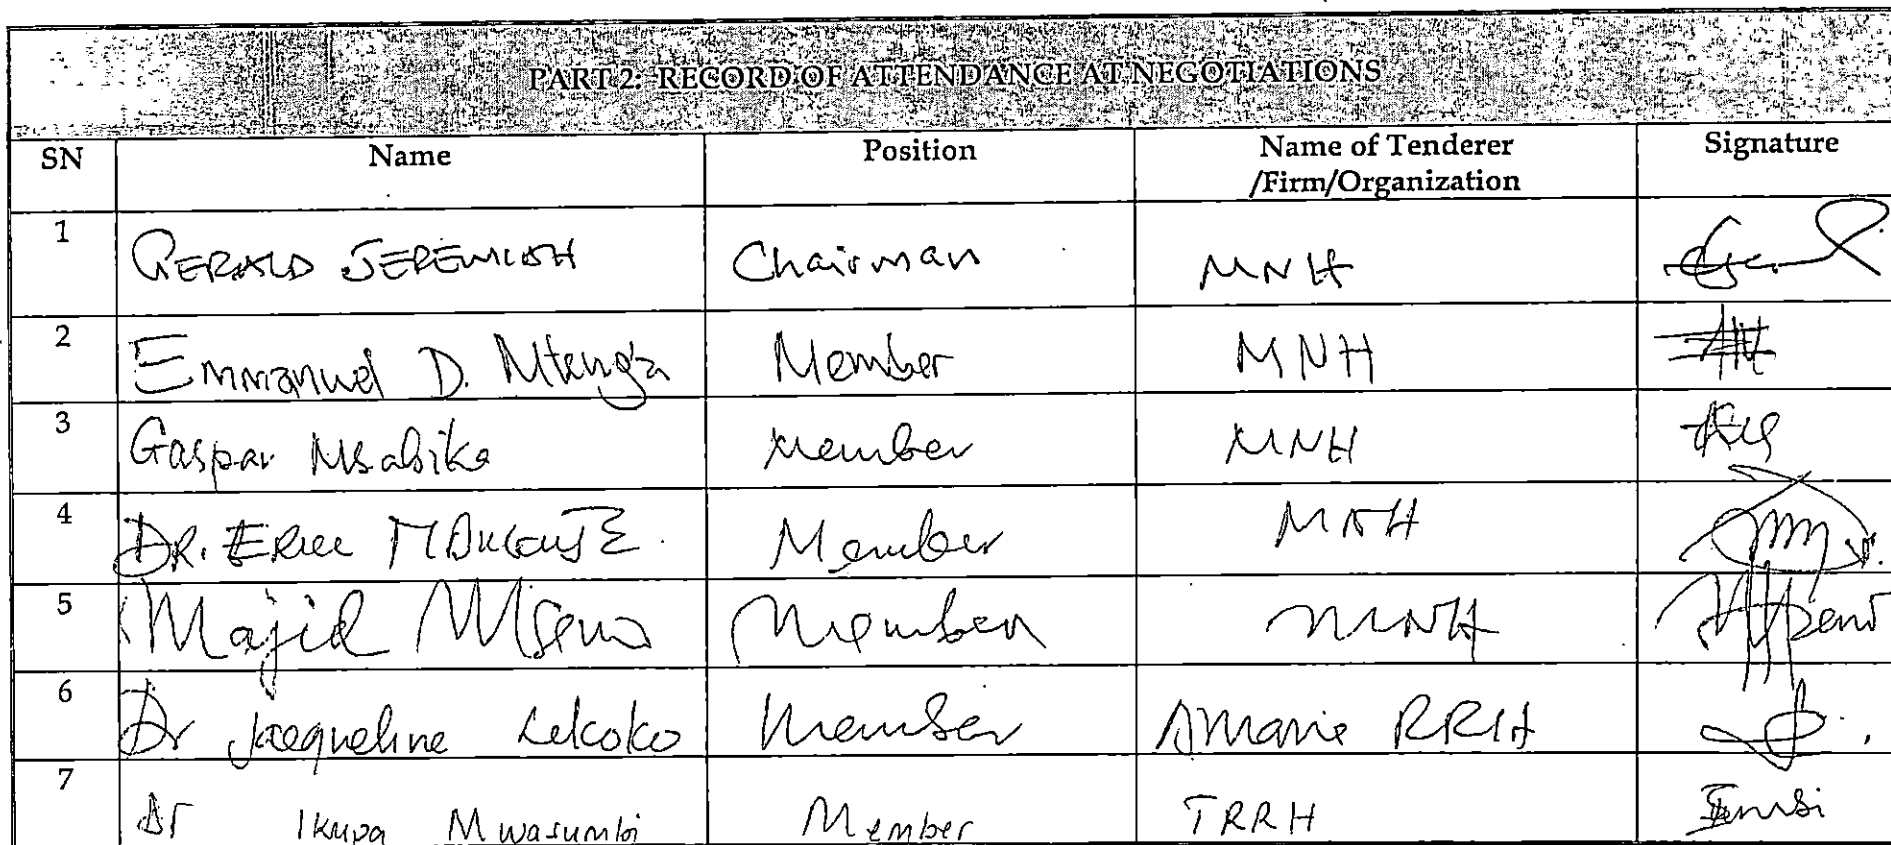 PART 2: RECORD OF ATTENDANCE AT NEGOTIATIONS
SN Name Position Name of Tenderer /Firm/Organization Signature
1 GERALD JEREMIAH Chairman MNH
2 Emmanuel D. Mtenga Member MNH
3 Gaspar Msabika Member MNH
4 DR. ERIC Member MNH
5 Majid Member MNH
6 Dr Jacqueline Lekoko Member Amana RRH
7 Dr Ikupa Mwasumbi Member TRRH